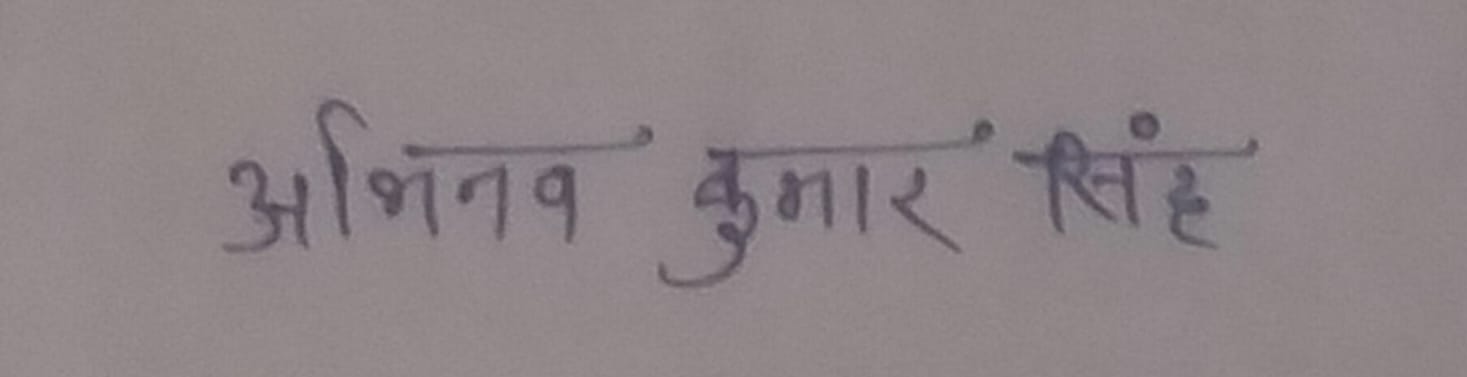 अभिनव कुमार सिंह